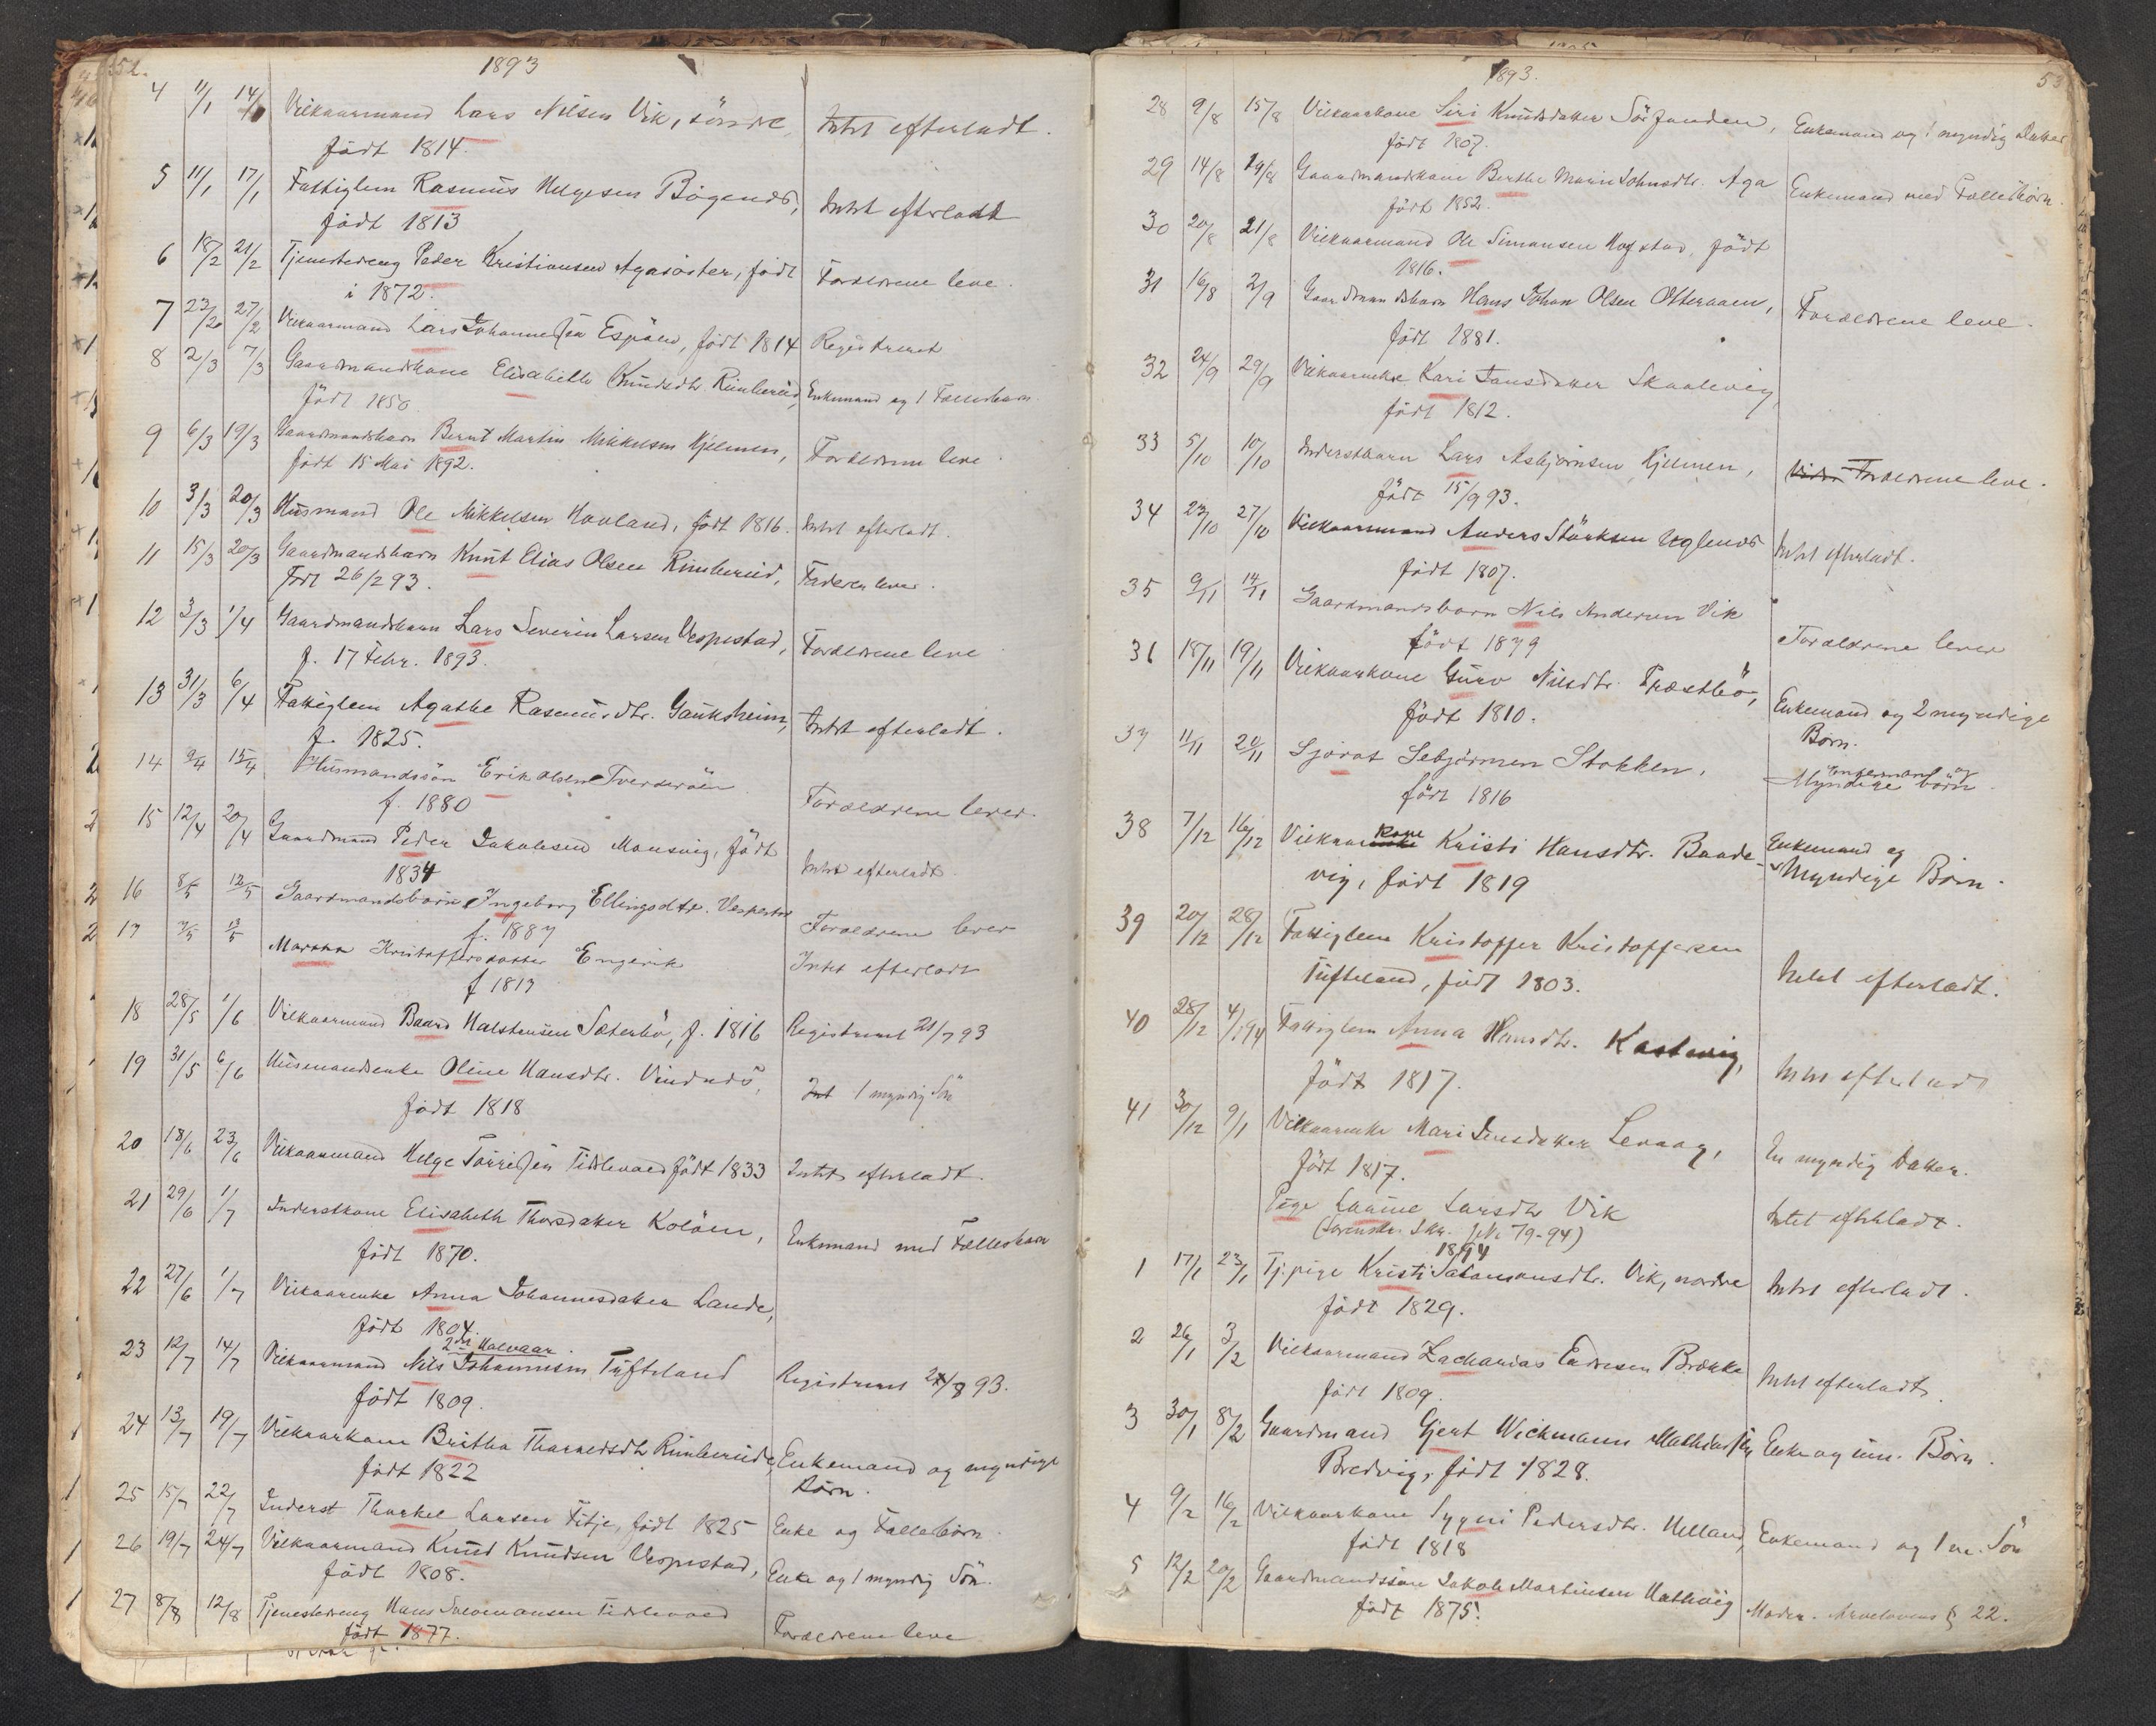 52.
1893
4 11/1 14/1 Vilkaarmand Lars Nilsen Vik, söndre, Intet efterladt.
født 1814.
5 11/1 17/1 Fattiglem Rasmus Helgesen Bögends, Intet efterladt
født 1813
6 18/2 21/2 Tjenestedreng Peder Kristiansen Agasöster, født Forældrene leve.
i 1872.
7 23/2 27/2 Vilkaarmand Lars Johannessen Espöen, født 1814 Registreret
8 2/3 7/3 Gaardmandskone Elisabeth Knudsdtr. Rimbereid, Enkemand og 1 Fællesbarn.
født 1850
9 6/3 19/3 Gaardmandsbarn Bernt Martin Mikkelsen Hjelmen, Forældrene leve.
født 15 Mai 1892.
10 3/3 20/3 Husmand Ole Mikkelsen Hovland, født 1816. Intet efterladt.
11 15/3 20/3 Gaardmandsbarn Knut Elias Olsen Rimbereid, Faderen lever.
født 26/2 93.
12 3/3 1/4 Gaardmandsbarn Lars Severin Larsen Vespestad, Forældrene leve
f. 17 Febr. 1893.
13 31/3 6/4 Fattiglem Agathe Rasmusdtr. Gauksheim, Intet efterladt.
f. 1825.
14 9/4 15/4 Husmandssön Erik Olsen Tverderöen Forældrene lever.
f. 1880
15 12/4 20/4 Gaardmand Peder Jakobsen Mousvig, født Intet efterladt.
1834
16 8/5 12/5 Gaardmandsbarn Ingeborg Ellingsdtr. Vespestad Forældrene lever
f. 1887
17 Martha Kristoffersdatter Engevik Intet efterladt
f 1813
18 28/5 1/6 Vilkaarmand Baard Halstensen Sæterbö, f. 1816 Registreret 21/7 93
19 31/5 6/6 Husmandsenke Oline Hansdtr. Vindnes, Int 1 myndig Sön
født 1818
20 18/6 23/6 Vilkaarmand Helge Torrissen Tislevoed født 1833 Intet efterladt.
21 29/6 1/7 Inderstkone Elisabeth Thorsdatter Kolöen, Enkemand med Fællesbarn
født 1870.
22 27/6 1/7 Vilkaarenke Anna Johannesdatter Lande,
født 1804.
2den Halvaar.
23 12/7 14/7 Vilkaarmand Nils Johannesen Tufteland Registreret 24/8 93.
født 1809.
24 13/7 19/7 Vilkaarkone Britha Tharaldsdtr. Rimbereide, Enkemand og myndige
født 1822 Börn.
25 15/7 22/7 Inderst Thorkel Larsen Fitje, født 1825 Enke og Fællesbörn.
26 19/7 24/7 Vilkaarmand Knud Knudsen Vespestad, Enke og 1 myndig Sön.
født 1808.
27 8/8 12/8 Tjenestedreng Hans Salomonsen Tislevoed Forældrene leve
født 1877.
53
1893.
28 9/8 15/8 Vilkaarkone Siri Knudsdatter Sörfonden, Enkemand og 1 myndig Datter
født 1807.
29 14/8 19/8 Gaardmandskone Berthe Marie Johnsdtr. Aga Enkemand med Fællesbörn.
født 1852.
30 20/8 21/8 Vilkaarmand Ole Simonsen Hogstad, født
1816.
31 16/8 2/9 Gaardmandsbarn Hans Johan Olsen Otteraaen, Forældrene leve.
født 1881.
32 24/9 29/9 Vilkaarenke Kari Jansdatter Skaalevig,
født 1812.
33 5/10 10/10 Inderstbarn Lars Asbjørnsen Hjelmen, Forældrene leve.
født 15/9 93.
34 23/10 27/10 Vilkaarmand Anders Störksen Uglenes Intet efterladt.
født 1807.
35 9/11 14/11 Gaardmandsbarn Nils Andersen Vik Forældrene lever
født 1879
36 18/11 19/11 Vilkaarkone Guro Nilsdtr. Præstbö, Enkemand og 2 myndige
født 1810. Börn.
37 11/11 20/11 Sjovat Sebjörnsen Stokken, Myndige börn.
født 1816
38 7/12 16/12 Vilkaarkone Kristi Hansdtr. Baade- Enkemand og
vig, født 1819 Myndige Börn.
39 20/12 28/12 Fattiglem Kristoffer Kristoffersen Intet efterladt.
Tufteland, født 1803.
40 28/12 4/1 94 Fattiglem Anna Hansdtr. Kastevig, Intet efterladt
født 1817.
41 30/12 9/1 Vilkaarenke Mari Jensdatter Levaag, En myndig Datter.
født 1817.
Pige Laurine Larsdtr Vik Intet efterladt.
(Lorensdr. Skr. Jr. 79-94)
1894
1 17/1 23/1 Tj.pige Kristi Salomonsdtr. Vik, nordre Intet efterladt.
født 1829.
2 26/1 3/2 Vilkaarmand Zacharias Endresen Brække Intet efterladt.
født 1809.
3 30/1 8/2 Gaardmand Gjert Wichmann Mathiassen Enke og um. Börn.
Bredvig, født 1828.
4 9/2 16/2 Vilkaarkone Sygni Pedersdtr. Helland, Enkemand og 1 m. Sön
født 1818
5 12/2 20/2 Gaardmandssön Jakob Martinsen Hathvig Moder. Arvelovens § 22.
født 1875.